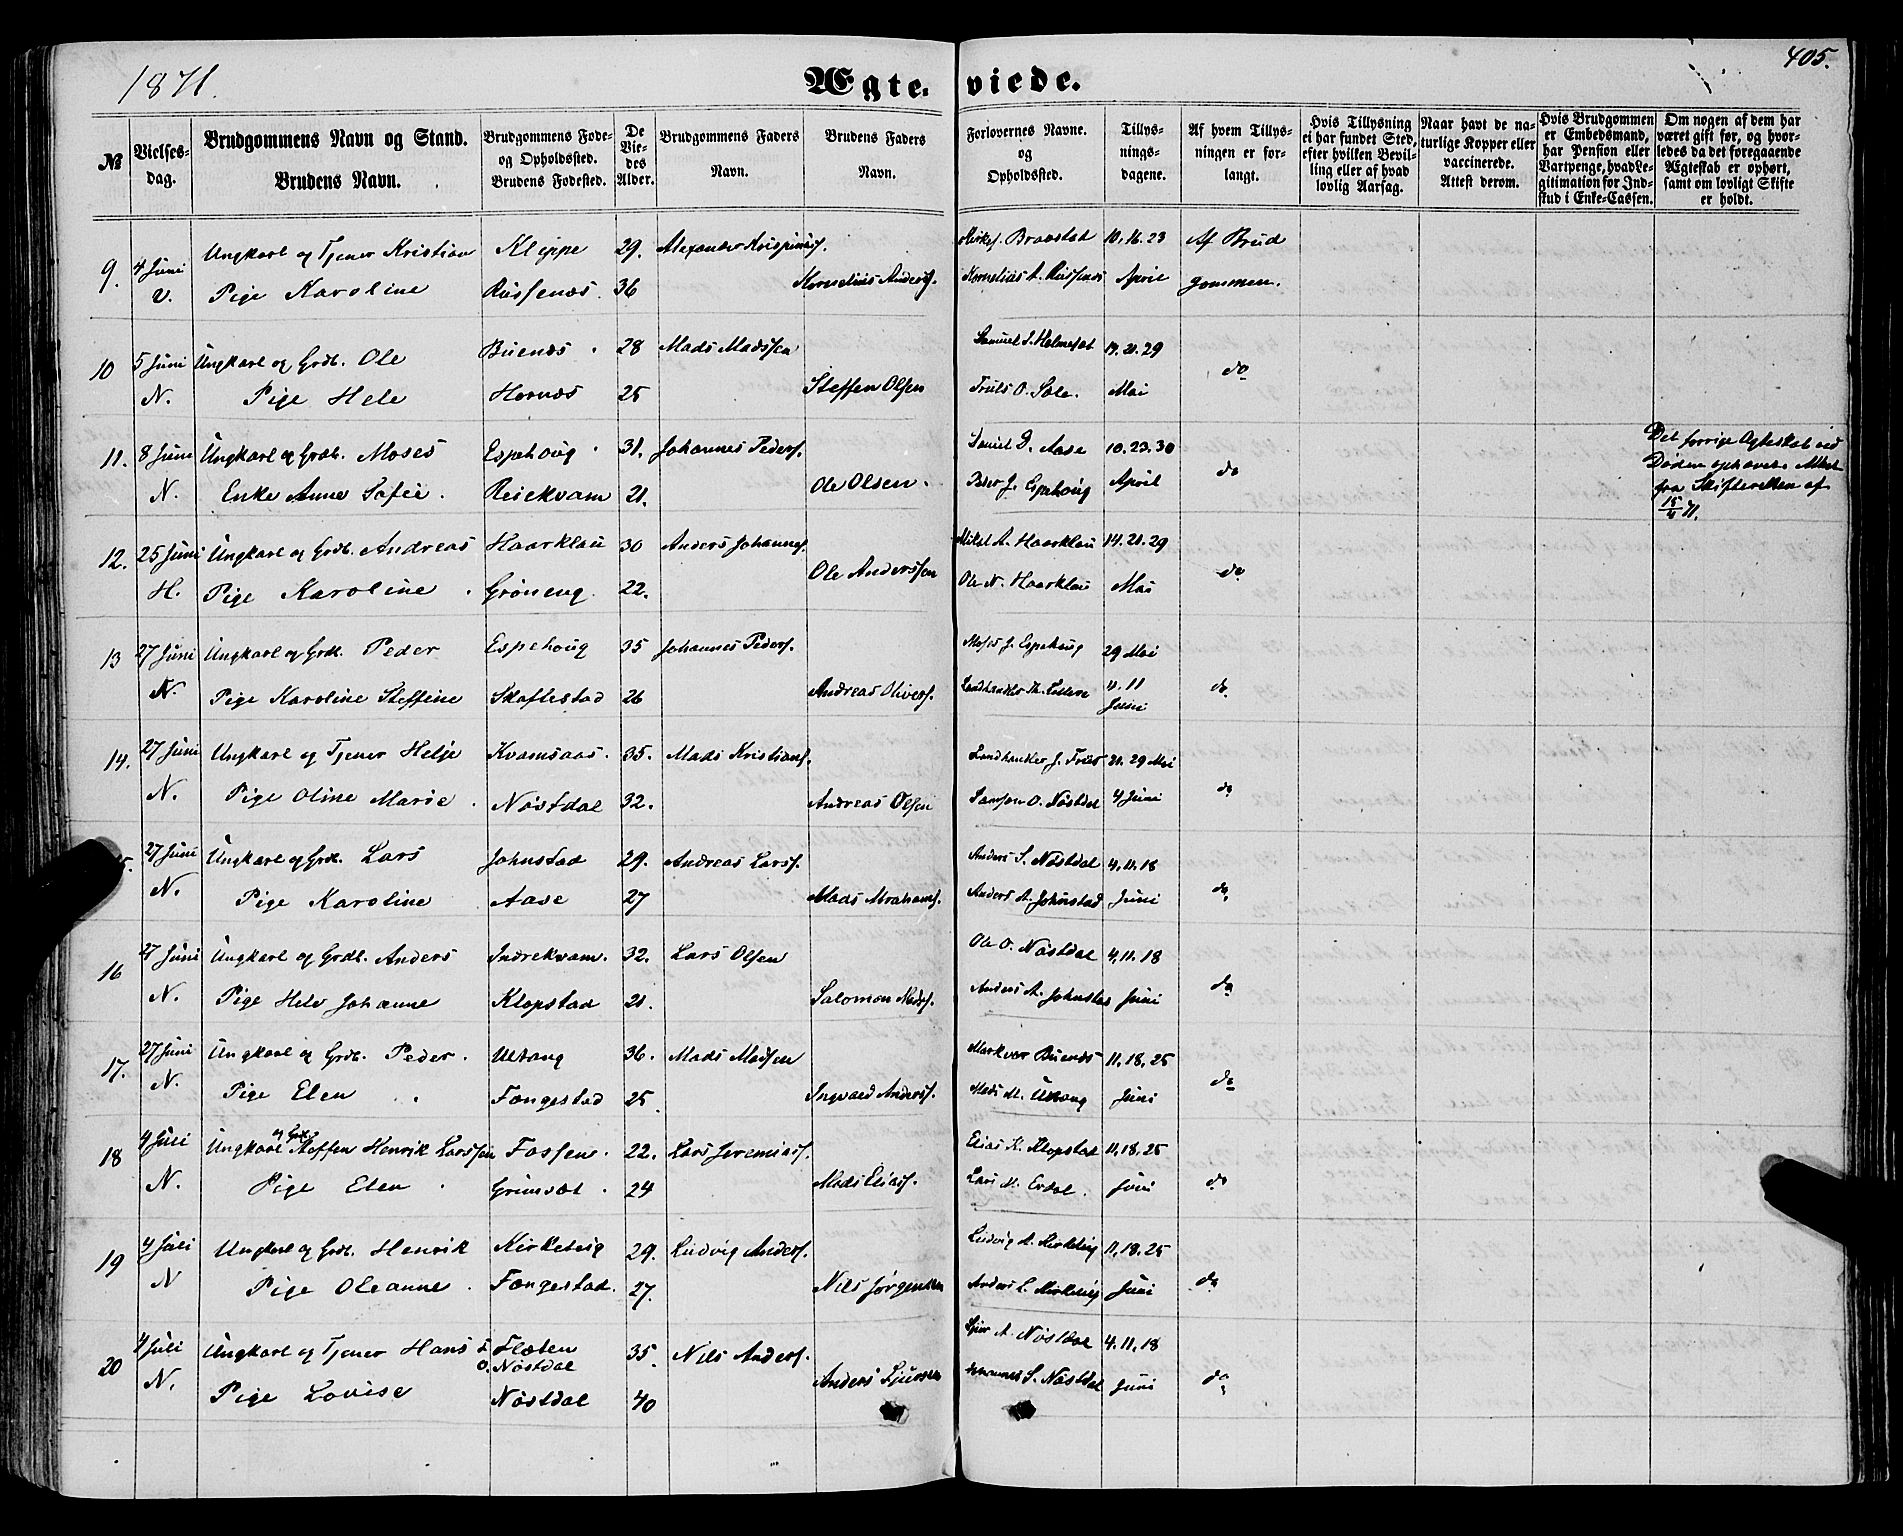 1871.
Ægte-
viede.
405.
№
Vielses-
dag.
Brudgommens Navn og Stand.
Brudens Navn.
Brudgommens Føde-
og Opholdssted.
Brudens Fødested.
De
Vie-
des
Alder.
Brudgommens Faders
Navn.
Brudens Faders
Navn.
Forlovernes Navne.
og
Opholdssted.
Tillys-
nings-
dagene.
Af hvem Tillys-
ningen er for-
langt.
Hvis Tillysning
ei har fundet Sted,
efter hvilken Bevil-
ling eller af hvad
lovlig Aarsag.
Naar havt de na-
turlige Kopper eller
vaccinerede.
Attest derom.
Hvis Brudgommen
er Embedsmand,
har Pension eller
Vartpenge, hvad Le-
gitimation for Ind-
skud i Enke-Cassen.
Om nogen af dem har
været gift før, og hvor-
ledes da det foregaaende
Ægteskab er ophørt,
samt om lovligt Skifte
er holdt.
9. 4 Juni Ungkarl og Tjener Kristian Klippe 29. Alexander 10, 16. 23 Af Brud
V. Pige Karoline Russenæs. 36 Kornelius Anders. Kornelius A. Russenæs April gommen.
10 5 Juni Ungkarl og Grdb. Ole Buenæs 28 Mads Madssen Samuel 29
N. Pige Hele Hornæs 25 Steffen Olsen Truls O. Mai do
11. 8 Juni Ungkarl og Grdb. Moses Espehoug 31. Johannes Peders. Aase 10. 23. 30
N. Enke Anne Sofie. 21. Ole Olsen. Peder J. Espehoug April do
Det forrige Ægteskab ved
Døden ophævet. Attest
fra Skifteretten af
15/4 71.
12. 25 Juni Ungkarl og Grdb. Andreas Haarklau 30 Anders Johannes. Mikel A. Haarklau 14. 21. 29
H. Pige Karoline Grøneng. 22. Ole Anderssen Ole N. Haarklau Mai do
13 27 Juni Ungkarl og Grdb. Peder Espehoug 35 Johannes Peders. Moses J. Espehoug 29 Mai
N. Pige Karoline Steffine Skaftestad 26 Andreas Olivers. Landhandler 4. 11 Juni do
14. 27 Juni Ungkarl og Tjener Helje Kvamsaas. 35. Mads Kristians. Landhandler J. Friis 21. 29 Mai
N. Pige Oline Marie Nøstdal 32. Andreas Olsen O. Nøstdal 4 Juni do
27 Juni Ungkarl og Grdb. Lars Johnstad 29. Andreas Lars. Anders S. Nøstdal 4. 11. 18
N. Pige Karoline Aase 27 Mads Abrahams. Anders A. Johnstad Juni do
16 27 Juni Ungkarl og Grdb. Anders Indrekvam. 32. Lars Olsen Ole O. Nøstdal 4. 11. 18
N. Pige Hele Johanne Klopstad 21. Salomon Mads. Anders A. Johnstad Juni do
17. 27 Juni Ungkarl og Grdb. Peder Ultang 36. Mads Madsen Markvor Buenæs 11, 18, 25
N. Pige Elen Fængestad 25 Ingvald Anders. Mads M. Ultang Juni do
18 4 Juli Ungkarl og Grdb. Steffen Henrik Larssen Fossen. 22. Lars Jeremias. Elias K. Klopstad 11, 18, 25
N. Pige Elen Grimset 24 Mads Elias. Lars M. Erdal. Juni do
19 4 Juli Ungkarl og Grdb. Henrik Kirketeig 29. Ludvig Anders. Ludvig A. Kirketeig 11, 18. 25
N Pige Oleanne Fængestad. 27. Nils Jørgensen Anders L. Kirketeig Juni do
20 4 Juli Ungkarl og Tjener Hans F. Flæten 35. Nils Anders. A. Nøstdal 4. 11, 18
O. Nøstdal
N. Pige Lovise Nøstdal 40 Anders S. Nøstdal Juni do